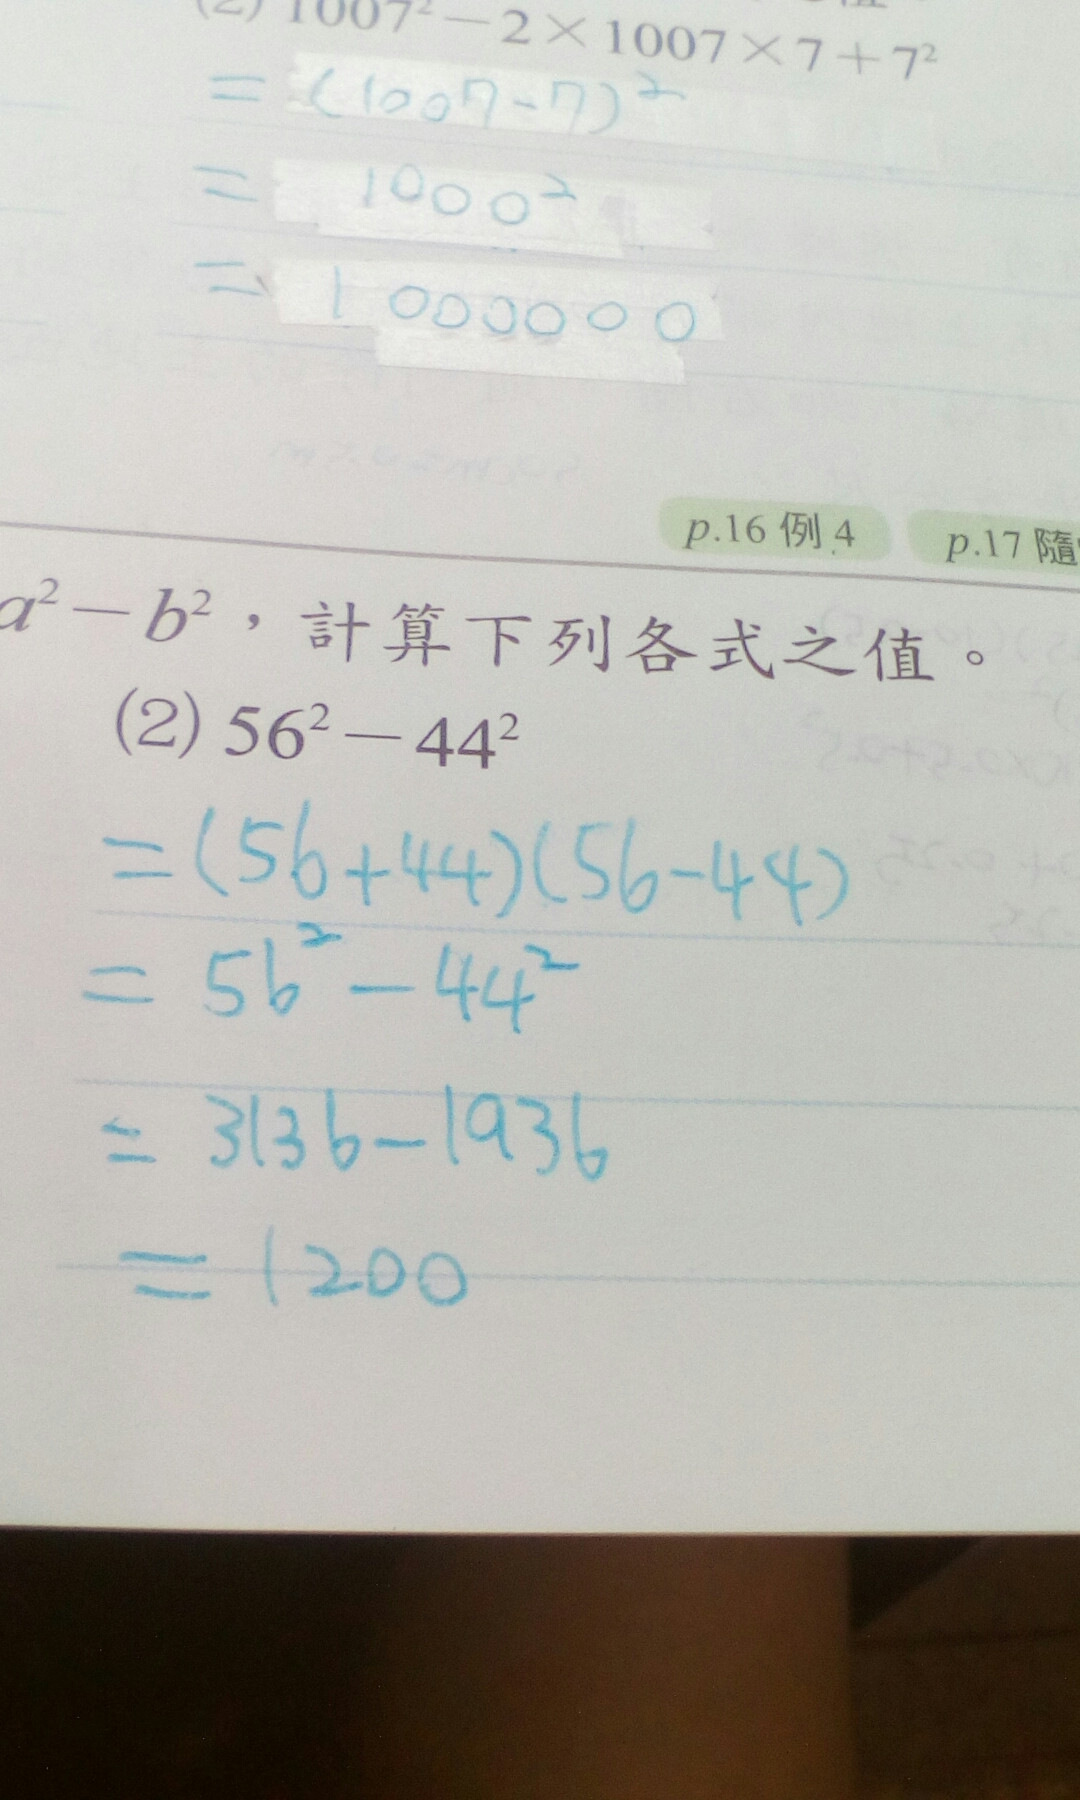 (2) 1007² − 2 × 1007 × 7 + 7²
= (1007-7)²
= 1000²
= 1000000
p.16 例 4 p.17 隨
a² − b²，計算下列各式之值。
(2) 56² − 44²
= (56+44)(56-44)
= 56² - 44²
= 3136 - 1936
= 1200